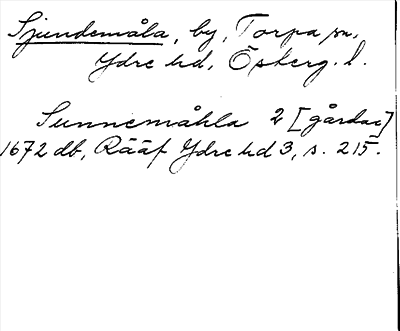 Sjundemåla, by, Torpa sn,
Ydre hd, Österg. l.
Sunnemåhla 2 [gårdar]
1672 db, Rääf Ydre hd 3, s. 215.